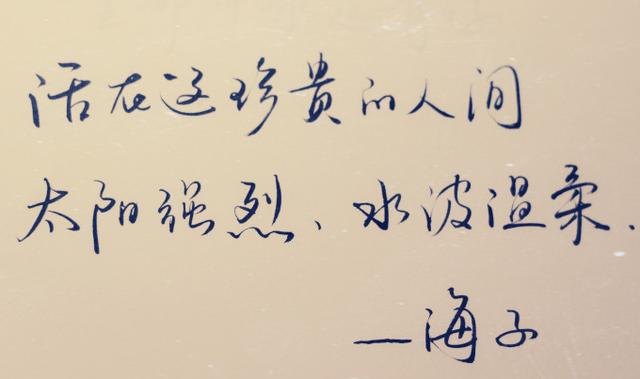 活在这珍贵的人间
太阳强烈、水波温柔.
—海子